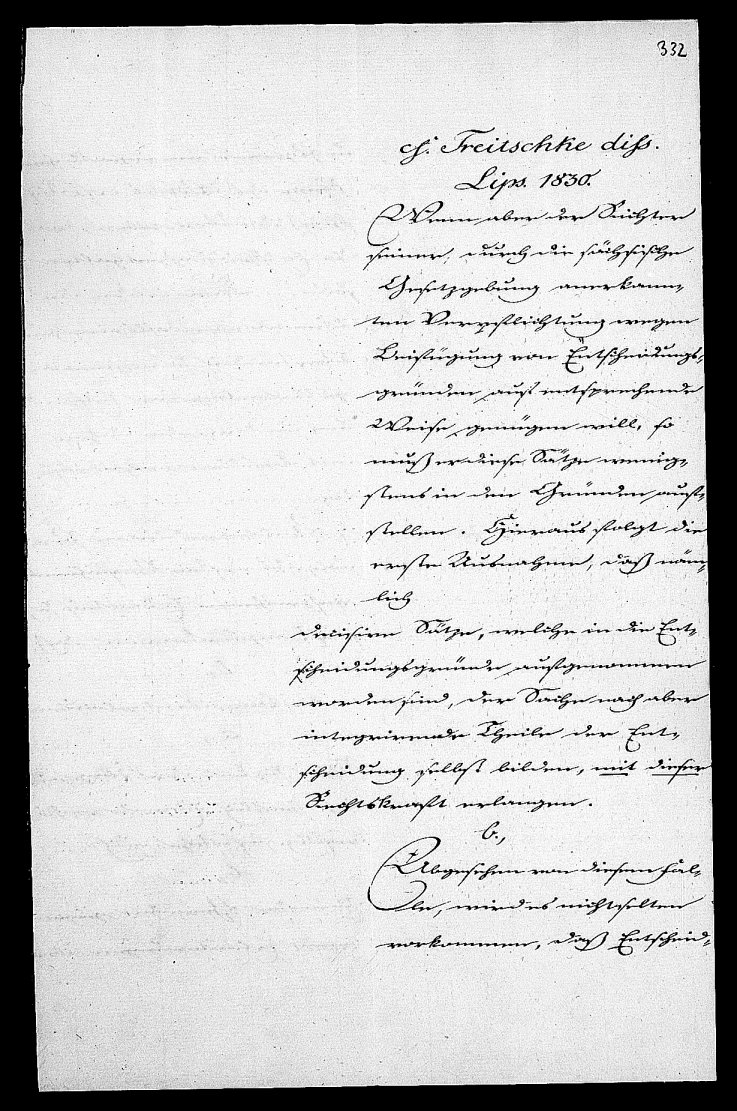 332
cf. Treitschke diss.
Lips. 1830.
Wenn aber der Richter
seiner, durch die sächsische
Gesetzgebung anerkann-
ten Verpflichtung wegen
Beifügung von Entscheidungs-
gründen auf entsprechende
Weise genügen will, so
muß er diese Sätze wenig-
stens in den Gründen auf-
stellen. Hieraus folgt die
erste Ausnahme, daß näm-
lich
decisive Sätze, welche in die Ent-
scheidungsgründe aufgenommen
worden sind, der Sache nach aber
integrirende Theile der Ent-
scheidung selbst bilden, mit dieser
Rechtskraft erlangen.
b.,
Abgesehen von diesem Fal-
le, wird es nicht selten
vorkommen, daß Entscheid-